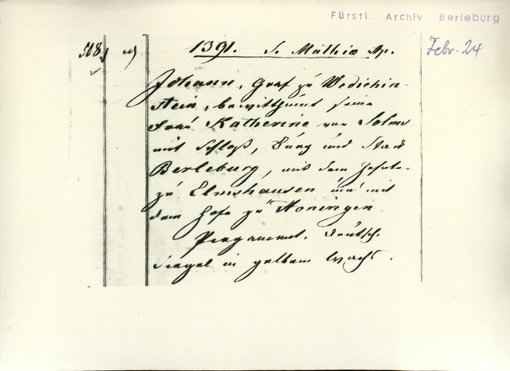 Fürstl. Archiv Berleburg
508.
1391. S. Mathiæ Ap.
Febr. 24
Johann, Graf zu
stein, bewitthumt seine
Frau Katherine von Solms
mit Schloß, Burg und Stadt
Berleburg, mit dem Hofe
zu Elmshausen und mit
dem Hofe zu Honingen
Pergament. Deutsch.
Siegel in gelbem Wachs.